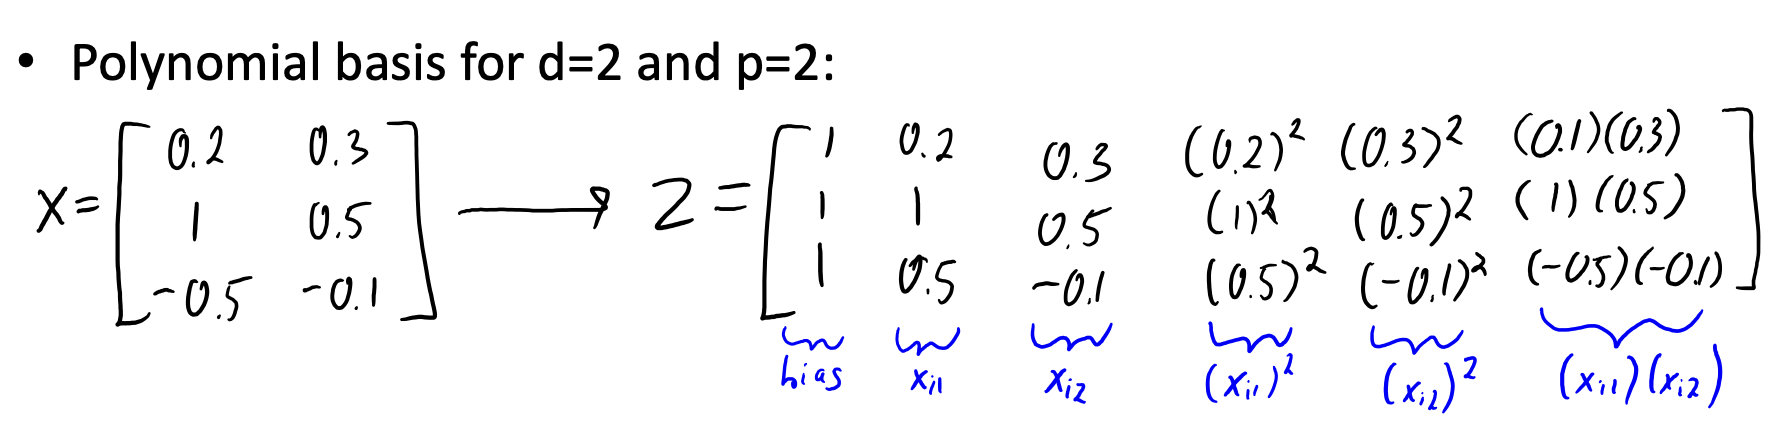 • Polynomial basis for d=2 and p=2:
X = [ 0.2 0.3 → Z = [ 1 0.2 0.3 (0.2)² (0.3)² (0.1)(0.3)
1 0.5 1 1 0.5 (1)² (0.5)² (1)(0.5)
-0.5 -0.1 ] 1 0.5 -0.1 (0.5)² (-0.1)² (-0.5)(-0.1) ]
bias xi1 xi2 (xi1)² (xi2)² (xi1)(xi2)